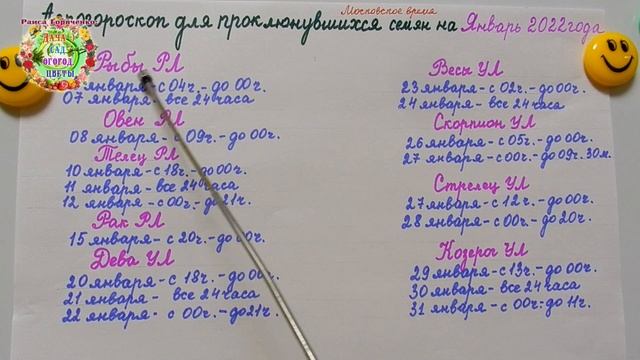 Раиса Горяченко
ДАЧА
САД
ОГОРОД
ЦВЕТЫ
Московское время
Агрогороскоп для проклюнувшихся семян на Январь 2022года
Рыбы РЛ
января - с 04ч. - до 00ч.
07 января - все 24 часа
Овен РЛ
08 января - с 09ч. - до 00ч.
Телец РЛ
10 января - с 18ч. - до 00ч.
11 января - все 24 часа
12 января - с 00ч. - до 21ч.
Рак РЛ
15 января - с 20ч. - до 00ч.
Дева УЛ
20 января - с 18ч. - до 00ч.
21 января - все 24 часа
22 января - с 00ч. - до 21ч.
Весы УЛ
23 января - с 02ч. - до 00ч.
24 января - все 24 часа
Скорпион УЛ
26 января - с 05ч. - до 00ч.
27 января - с 00ч. - до 09ч. 30м.
Стрелец УЛ
27 января - с 12ч. - до 00ч.
28 января - с 00ч. - до 20ч.
Козерог УЛ
29 января - с 13ч. - до 00ч.
30 января - все 24 часа
31 января - с 00ч. - до 11ч.